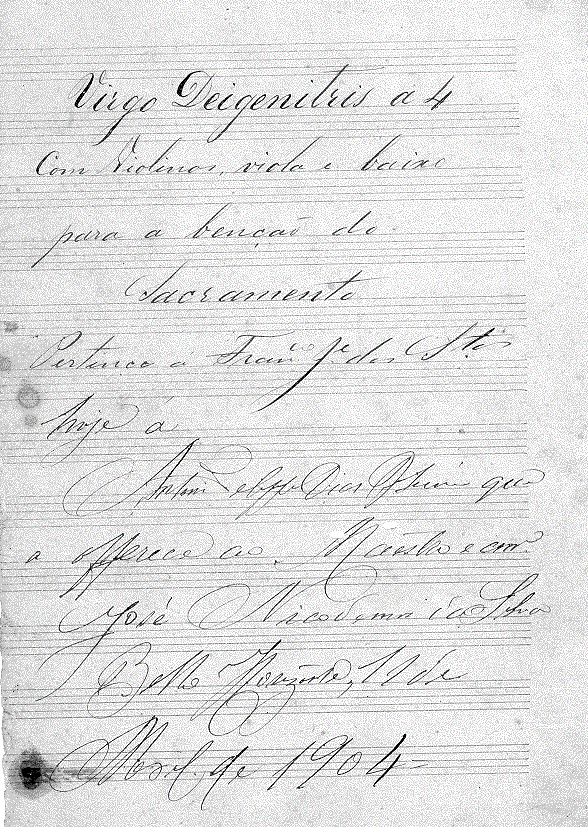 Virgo Deigenitris a 4
Com Violinos, viola e baixo
para a benção do
Sacramento
Pertence a Franco Je dos Stos
hoje á
Antonio que
a offerece ao Maestro e
José Nicodemos da Silva
Bello Horizonte, 11 de
Abril de 1904